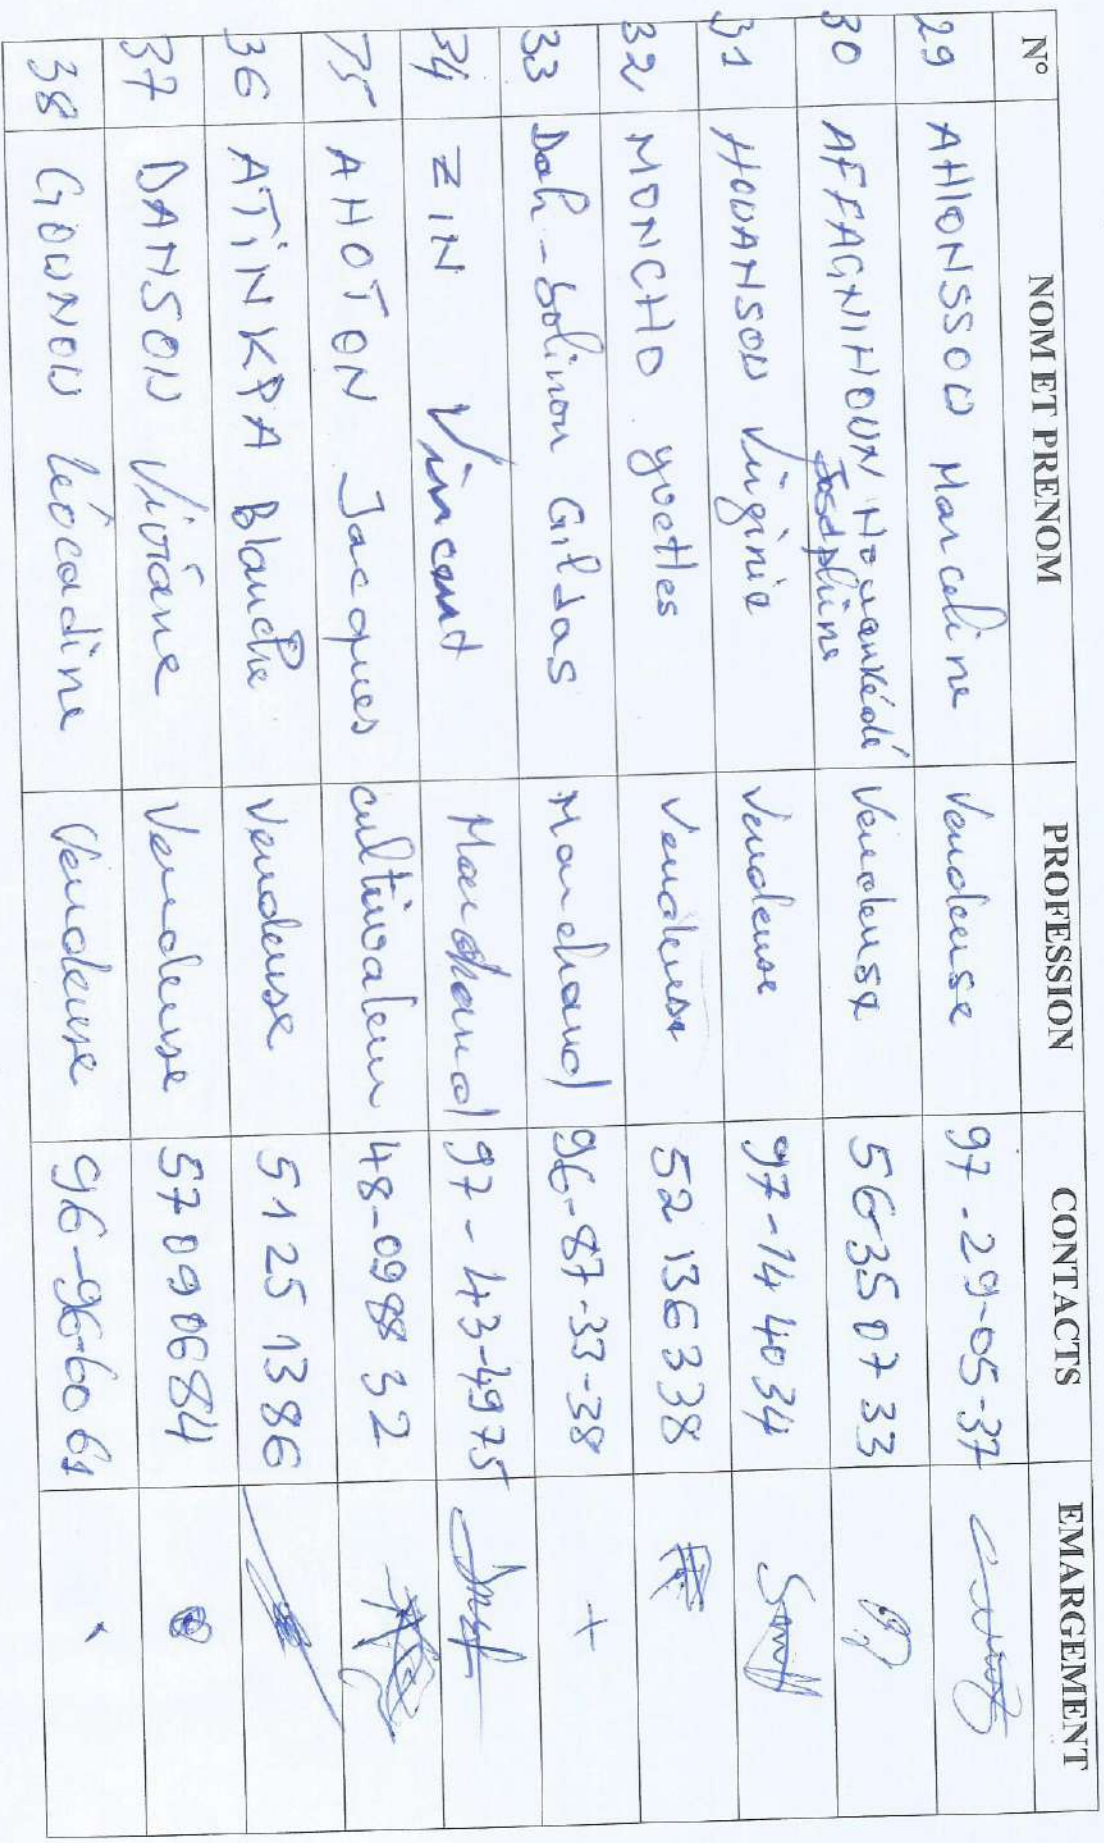 N° NOM ET PRENOM PROFESSION CONTACTS EMARGEMENT
29 AHIONSSOU Marceline Vendeuse 97-29-05-37
30 AFFAGNIHOUN Josephine Vendeuse 56350733
31 HOUANSOU Virginie Vendeuse 97-14 4034
32 MONCHO yvettes Vendeuse 52 136338
33 Dah-bolinon Gildas Marchand 96-87-33-38 +
34 ZIN Vincent Marchand 97-43-4975
35 AHOTON Jacques cultivateur 48-0998 32
36 ATINKPA Blanche Vendeuse 51 25 1386
37 DANSOU Viviane Vendeuse 57090684
38 GOUNOU léocadine Vendeuse 96-96-6061